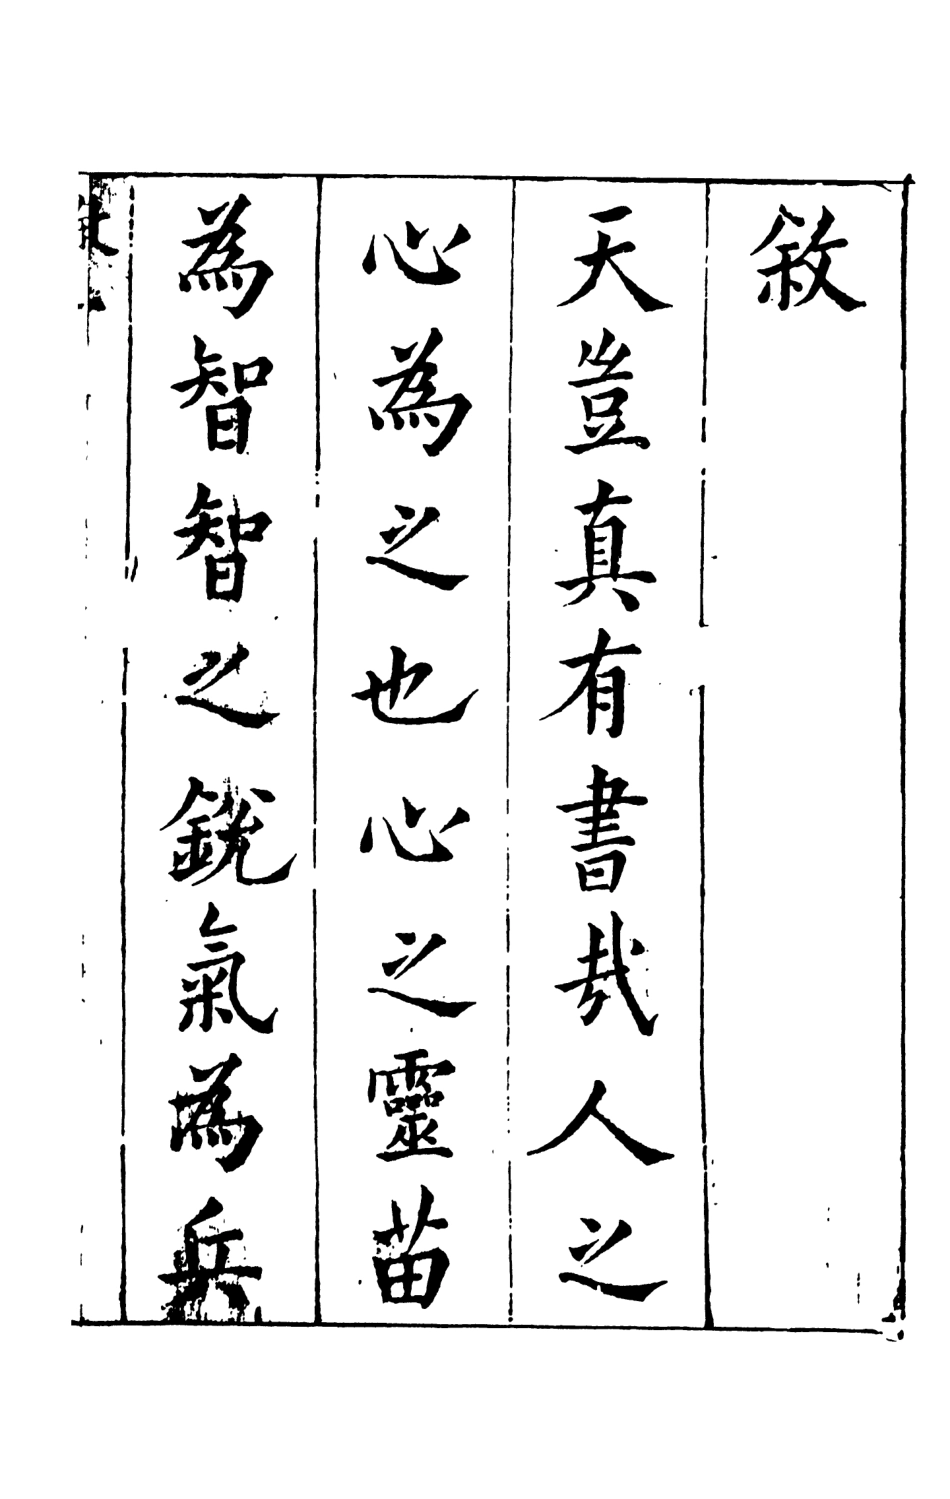 敘
天豈真有書哉人之
心為之也心之靈苗
為智智之銳氣為兵